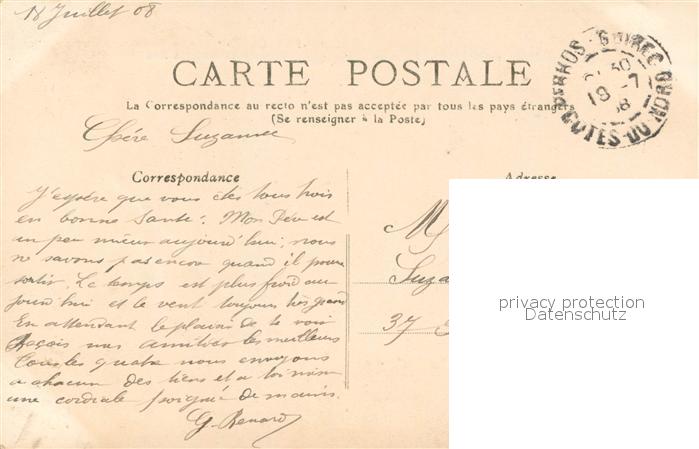 18 Juillet 08
PERROS-GUIREC
18 -7
08
COTES-DU-NORD
CARTE POSTALE
La Correspondance au recto n'est pas acceptée par tous les pays étrangers
(Se renseigner à la Poste)
Chère Suzanne
Correspondance
Adresse
J'espère que vous êtes tous trois
en bonne santé. Mon Père est
un peu mieux aujourd'hui; nous
ne savons pas encore quand il pourra
sortir. Le temps est plus froid au
jourd'hui et le vent toujours très grand
En attendant le plaisir de te voir
Reçois mes amitiés les meilleurs
Tous les quatre nous envoyons
a chacun des tiens et a toi même
une cordiale poignée de mains.
G. Renard
M
Suza
37
privacy protection
Datenschutz